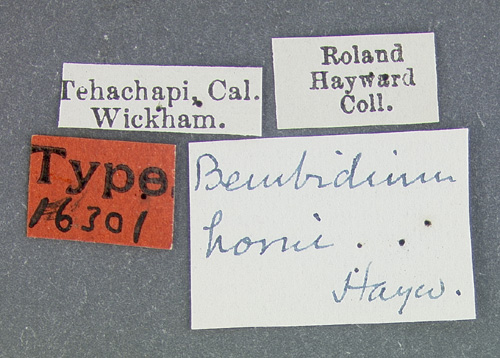 Tehachapi, Cal.
Wickham.
Roland
Hayward
Coll.
Type
16301
Bembidium
hornii . . .
Hayw.